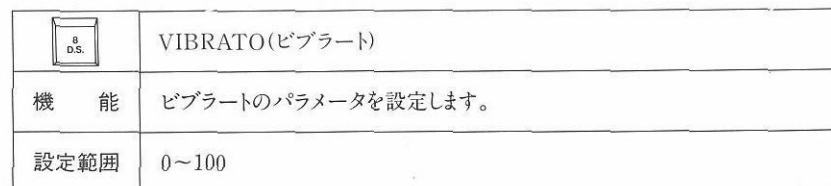 8
D.S.
VIBRATO(ビブラート)
機 能 ビブラートのパラメータを設定します。
設定範囲 0~100